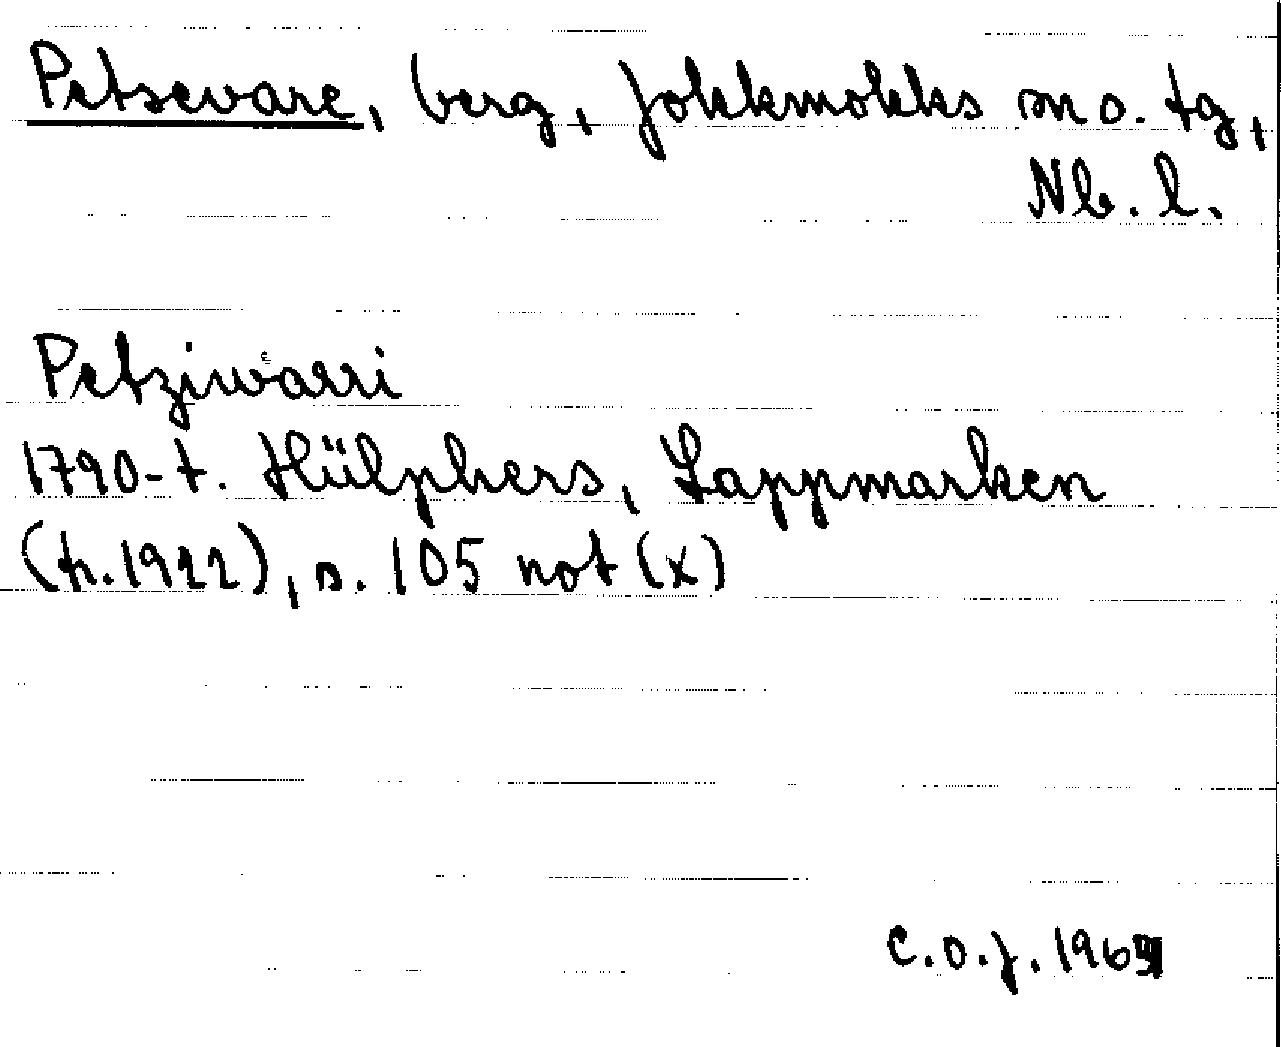 Petsevare, berg, Jokkmokks sn o. tg,
Nb. l.
Petziwarri
1790-t. Hülphers, Lappmarken
(tr. 1922), s. 105 not (x)
C.O.J. 1965